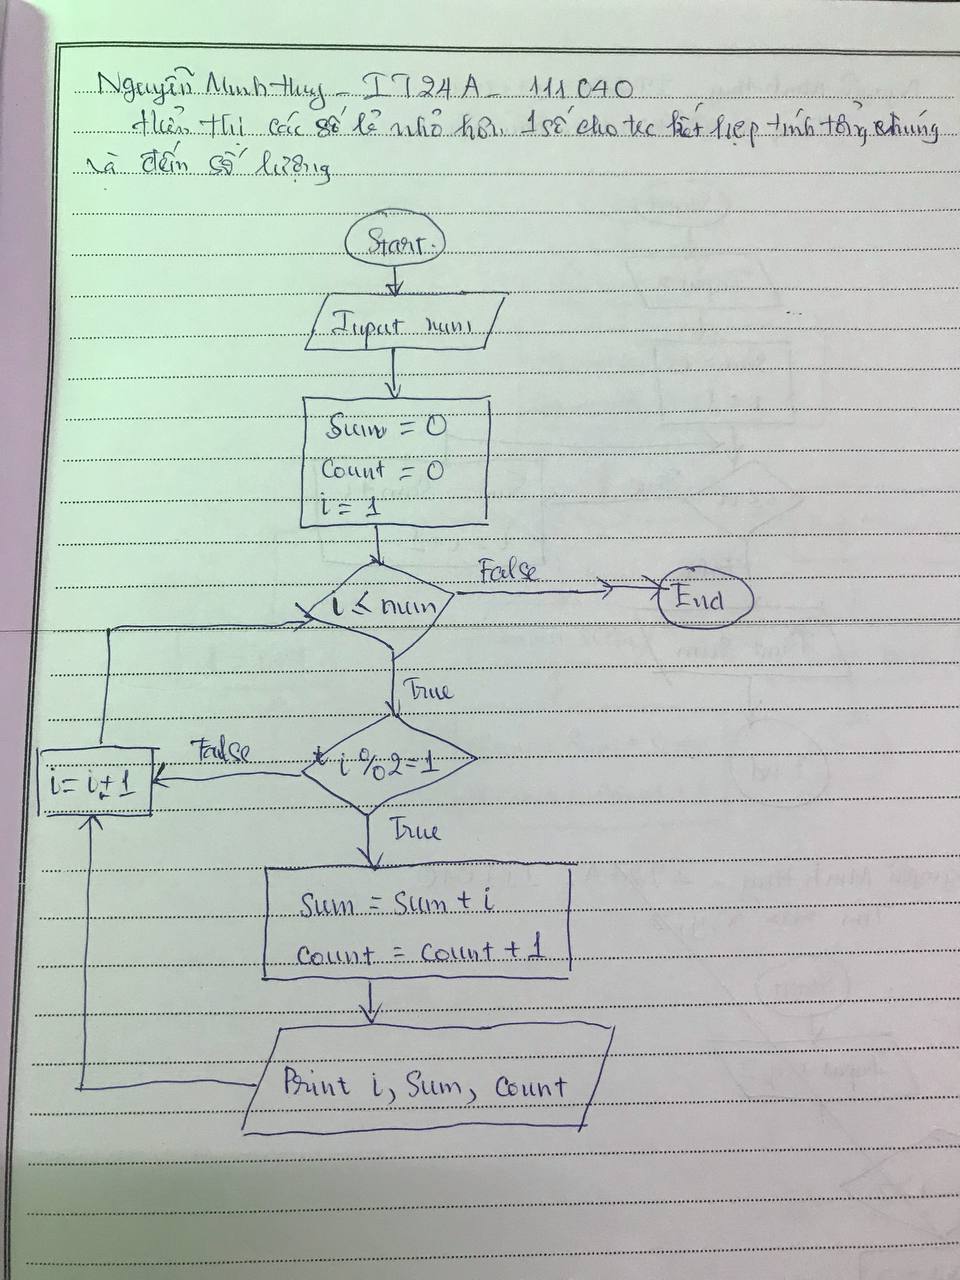 Nguyễn Minh Huy - IT24A - 111040
Hiển thị các số lẻ nhỏ hơn 1 số cho trc kết hợp tính tổng chúng
và đếm số lượng
Start
Input num
Sum = 0
Count = 0
i = 1
i ≤ num
False
End
True
i % 2 = 1
False
i = i + 1
True
Sum = Sum + i
count = count + 1
Print i, Sum, Count